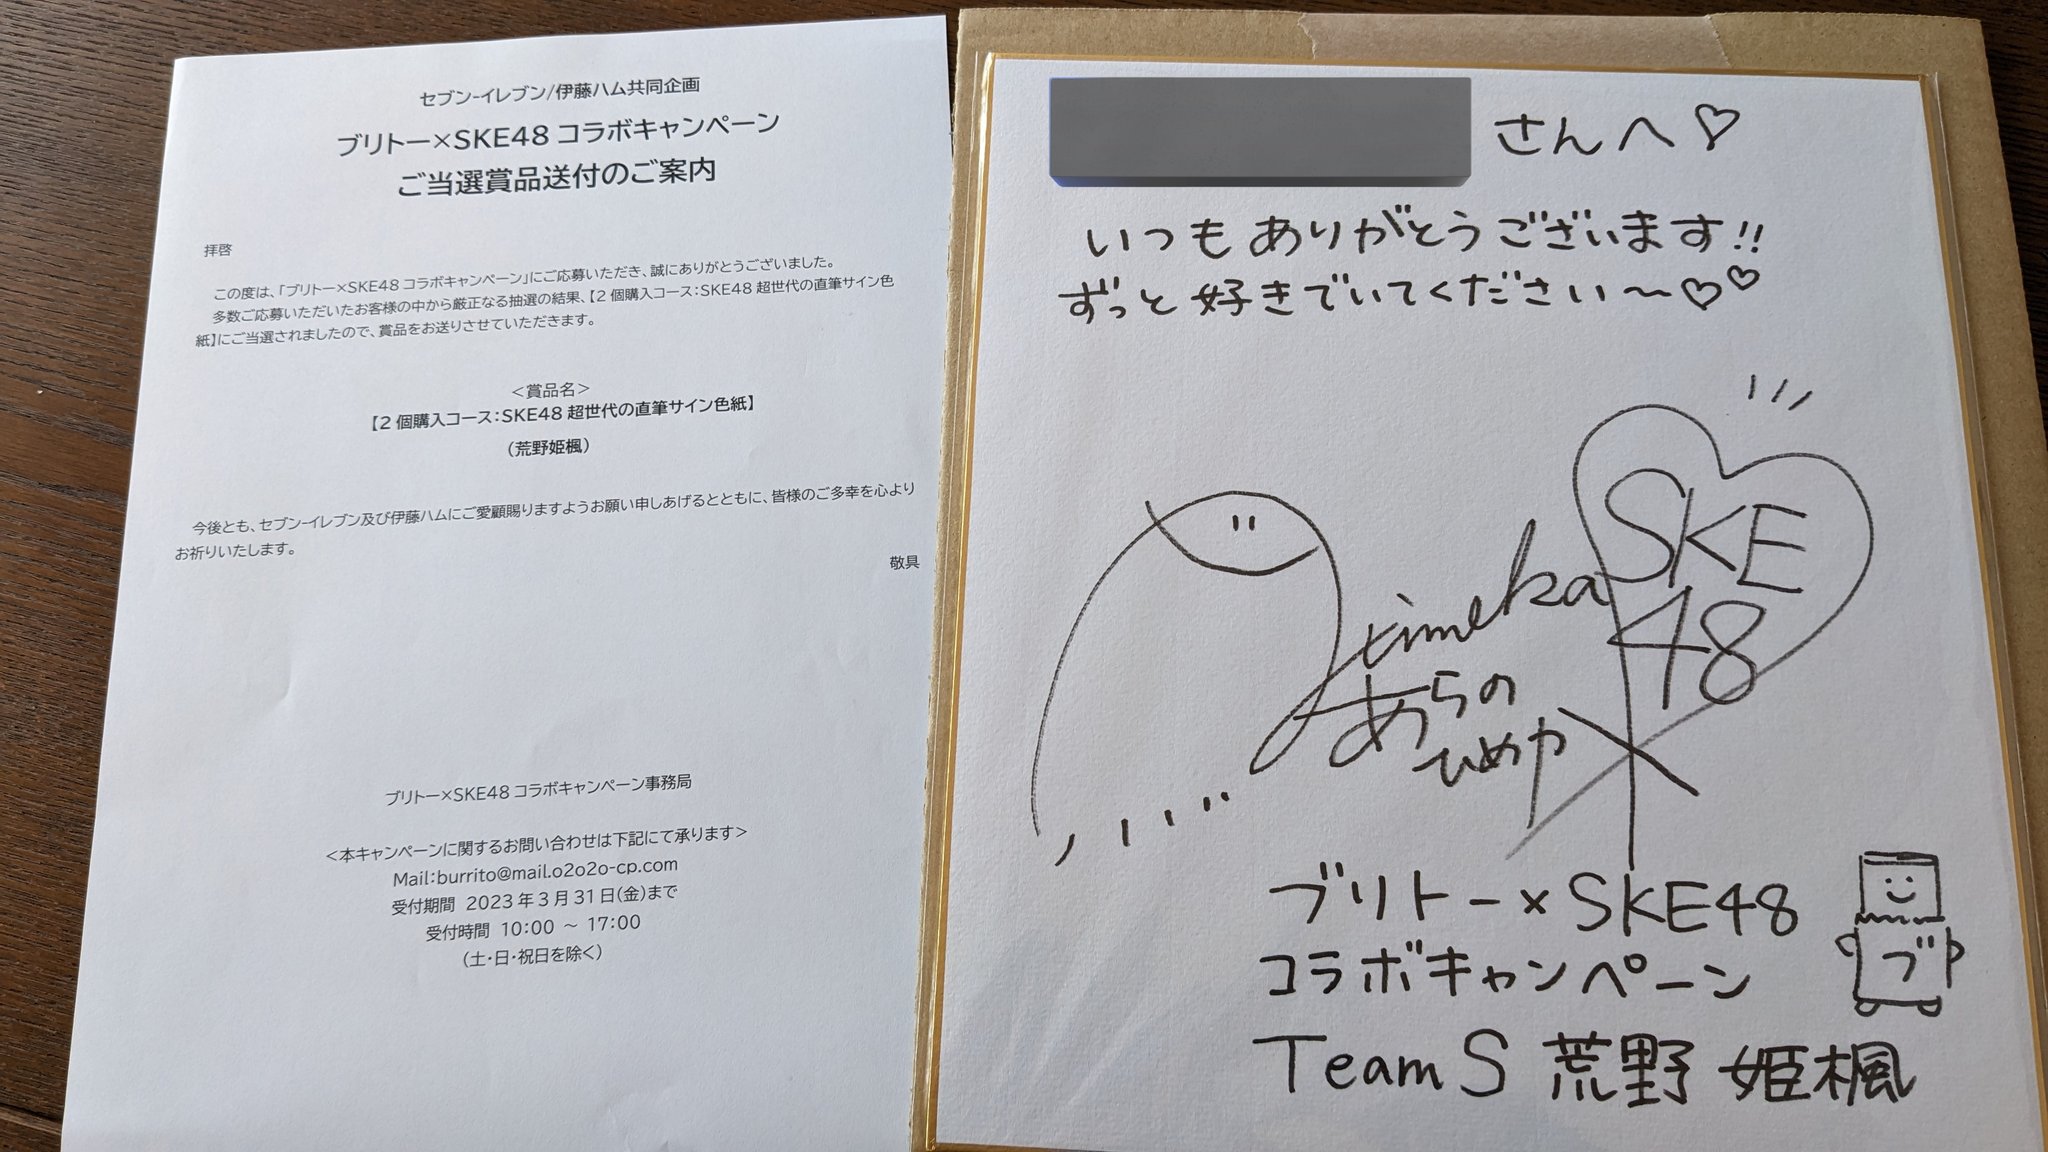 セブン-イレブン/伊藤ハム共同企画
ブリトー×SKE48 コラボキャンペーン
ご当選賞品送付のご案内
拝啓
この度は、「ブリトー×SKE48 コラボキャンペーン」にご応募いただき、誠にありがとうございました。
多数ご応募いただいたお客様の中から厳正なる抽選の結果、【2 個購入コース：SKE48 超世代の直筆サイン色
紙】にご当選されましたので、賞品をお送りさせていただきます。
＜賞品名＞
【2 個購入コース：SKE48 超世代の直筆サイン色紙】
（荒野姫楓）
今後とも、セブン-イレブン及び伊藤ハムにご愛顧賜りますようお願い申しあげるとともに、皆様のご多幸を心より
お祈りいたします。
敬具
ブリトー×SKE48 コラボキャンペーン事務局
＜本キャンペーンに関するお問い合わせは下記にて承ります＞
Mail：burrito@mail.o2o2o-cp.com
受付期間 2023 年 3 月 31 日（金）まで
受付時間 10：00 ～ 17：00
（土・日・祝日を除く）
さんへ♡
いつもありがとうございます!!
ずっと好きでいてください〜♡♡
SKE
48
Himeka
あらの
ひめか
ブリトー×SKE48
コラボキャンペーン
ブ
Team S 荒野 姫楓